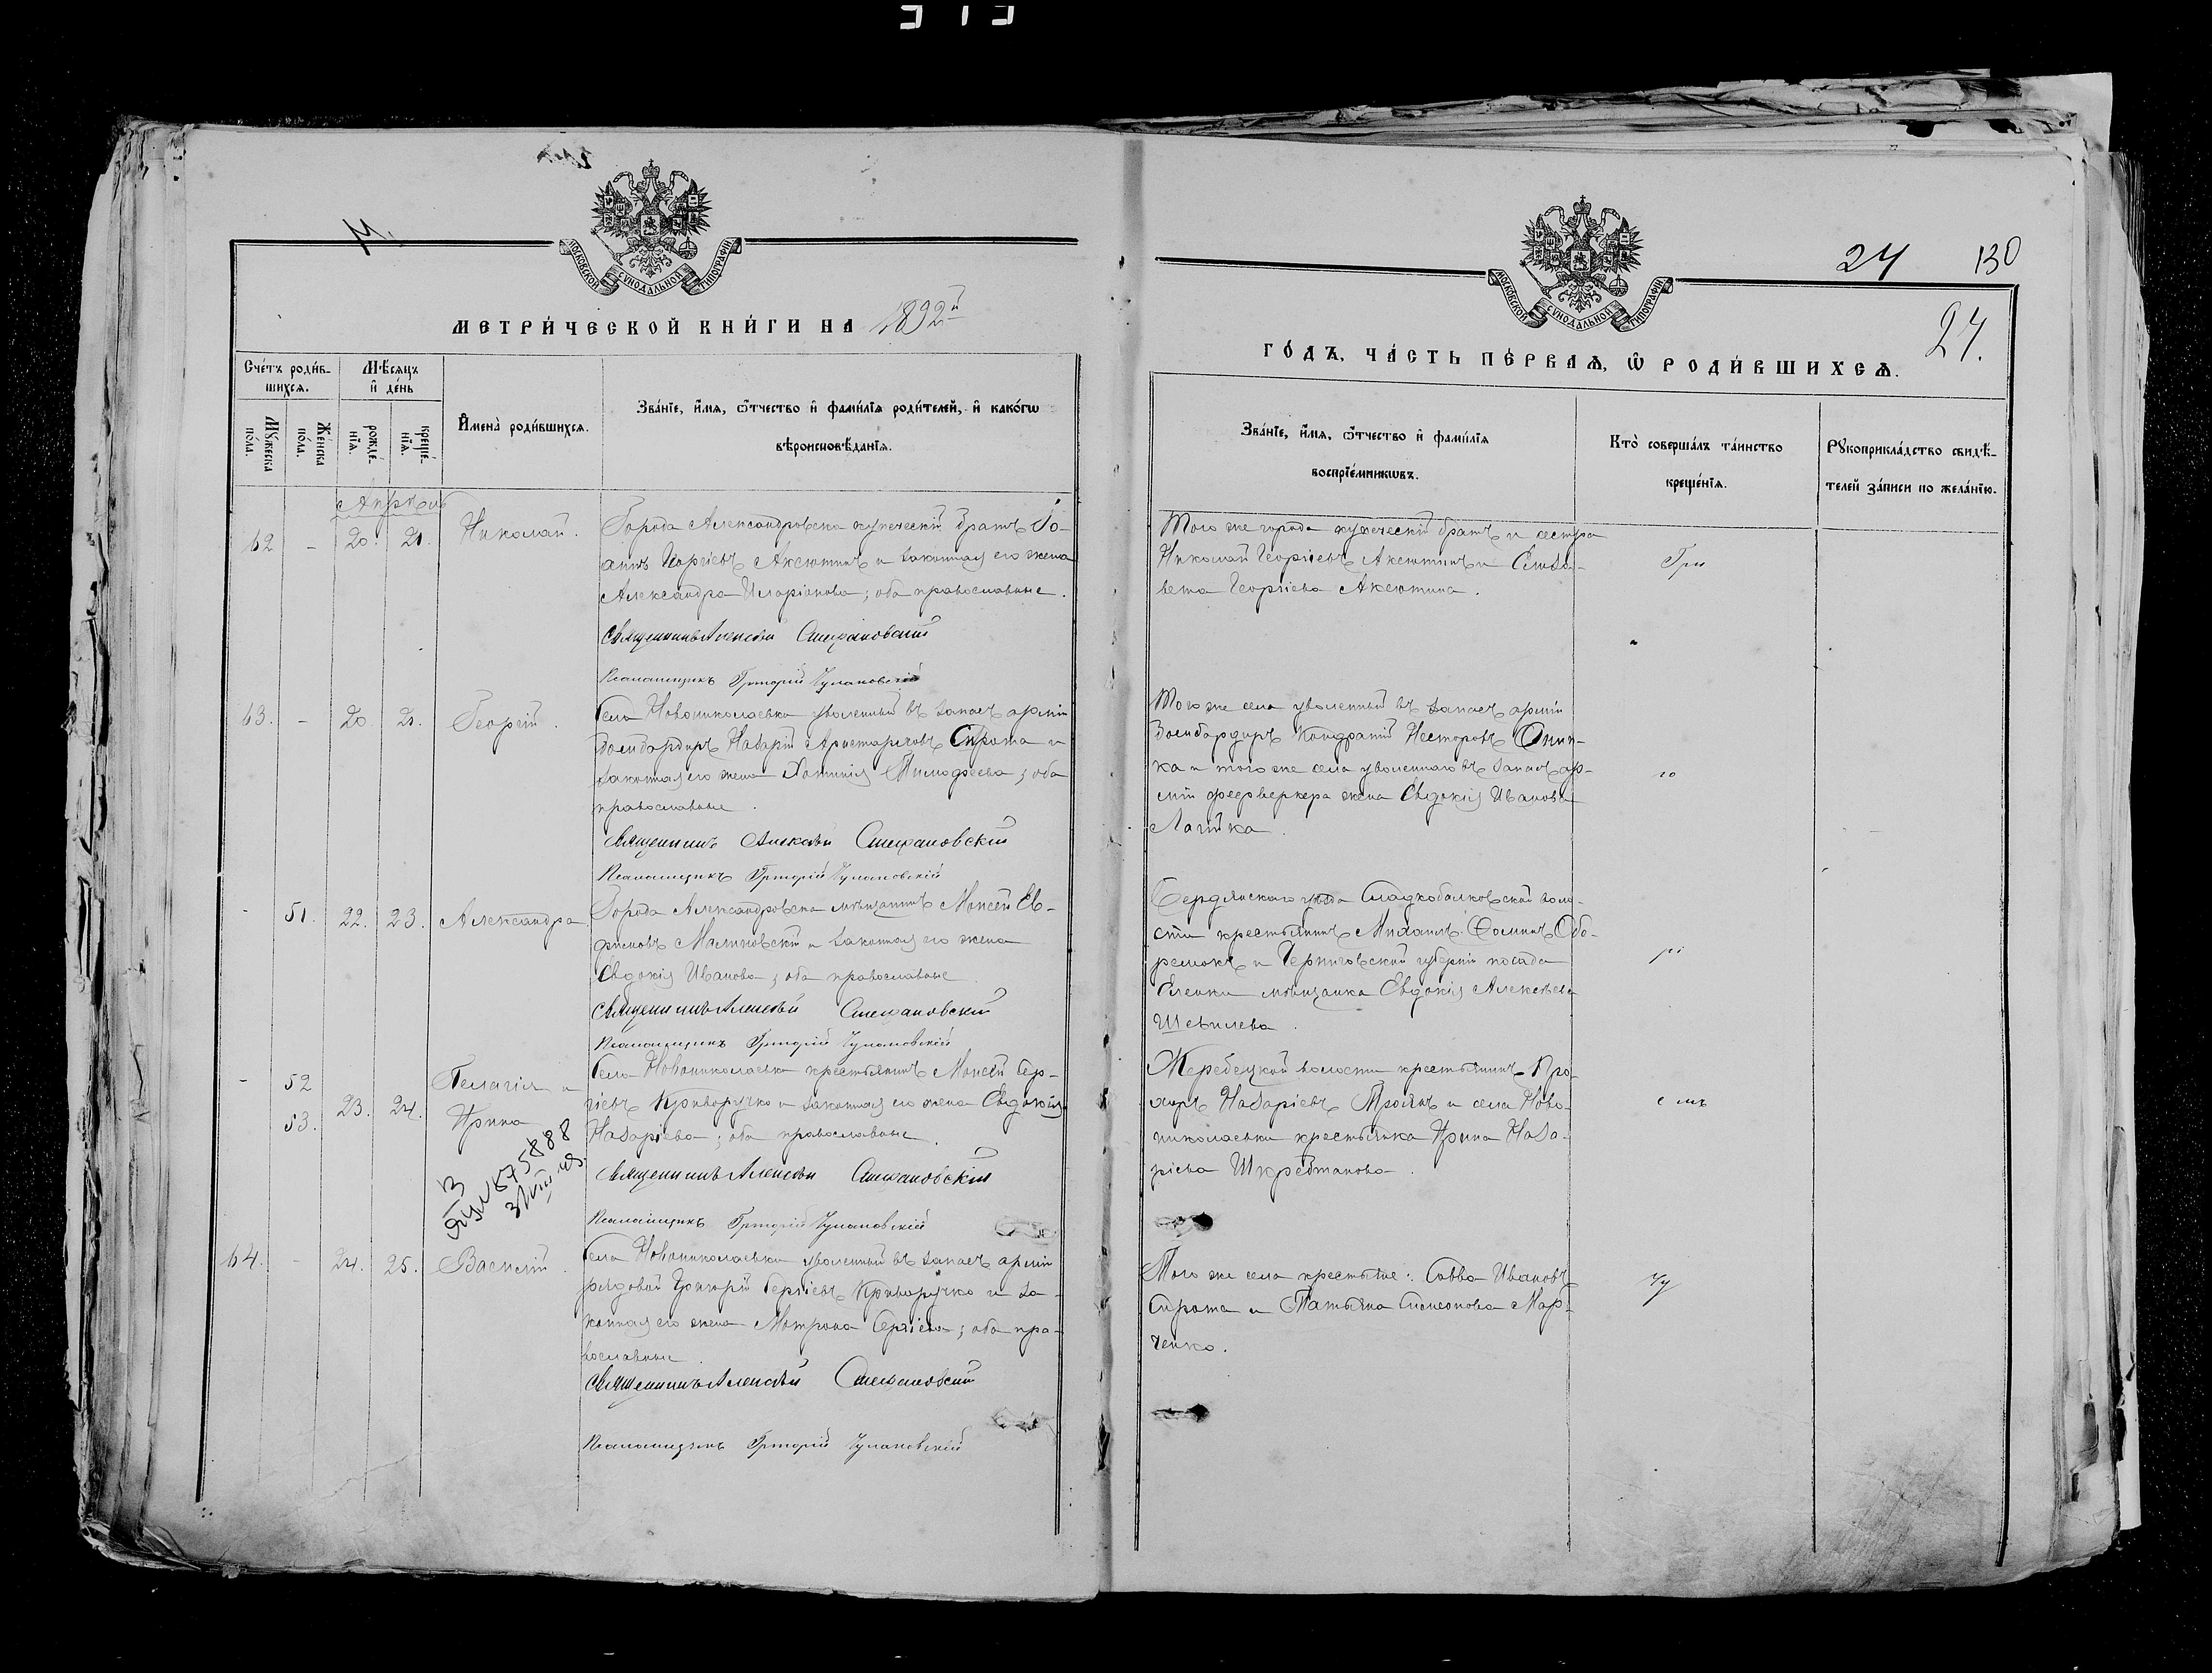 МОСКОВСКОЙ СѴНОДАЛЬНОЙ ТИПОГРАФІИ
МЕТРИ́ЧЕСКОЙ КНИ́ГИ НА 1892й
Сче́тъ роди́в-
шихсѧ.
Мꙋ́жеска
по́ла.
Же́нска
по́ла.
Мѣ́сѧцъ
и҆ де́нь
рожде́-
нїѧ.
креще́-
нїѧ.
И҆мена̀ роди́вшихсѧ.
Зва́нїе, и҆́мѧ, ѻ҆́тчество и҆ фами́лїѧ роди́телей, и҆ како́гѡ
вѣроисповѣ́данїѧ.
Апрѣль
62 - 20. 21. Николай.
Города Александровска купеческій братъ Іо-
аннъ Георгіевъ Аксютинъ и законная его жена
Александра Иларіонова; оба православные.
Священникъ Алексѣй Стефановскій
Псаломщикъ Григорій Чулановскій
63. - 20. 21. Георгій.
Села Новониколаевки уволенный въ запасъ арміи
бомбардиръ Назарій Аристарховъ Сирота и
законная его жена Хотинія Тимофеева; оба
православные.
Священникъ Алексѣй Стефановскій
Псаломщикъ Григорій Чулановскій
- 51. 22. 23. Александра
Города Александровска мѣщанинъ Моисей Ев-
фимовъ Малиновскій и законная его жена
Евдокія Иванова; оба православные
Священникъ Алексѣй Стефановскій
Псаломщикъ Григорій Чулановскій
- 52
53. 23. 24. Пелагія и
Ирина
Села Новониколаевки крестьянинъ Моисей Сер-
гіевъ Криворучко и законная его жена Евдокія
Назаріева; оба православные.
Священникъ Алексѣй Стефановскій
Псаломщикъ Григорій Чулановскій
64. - 24. 25. Василій.
Села Новониколаевки уволенный въ запасъ арміи
рядовой Григорій Сергіевъ Криворучко и за-
конная его жена Мотрона Сергіева; оба пра-
вославные.
Священникъ Алексѣй Стефановскій
Псаломщикъ Григорій Чулановскій
МОСКОВСКОЙ СѴНОДАЛЬНОЙ ТИПОГРАФІИ
24 130
27.
ГО́ДЪ, ЧА́СТЬ ПЕ́РВАѦ, Ѡ҆ РОДИ́ВШИХСѦ.
Зва́нїе, и҆́мѧ, ѻ҆́тчество и҆ фами́лїѧ
воспрїе́мникѡвъ.
Кто̀ соверша́лъ та́инство
креще́нїѧ.
Рꙋкоприкла́дство свидѣ́-
телей за́писи по жела́нїю.
Того же города купеческій братъ и сестра
Николай Георгіевъ Аксютинъ и Елиза-
вета Георгіева Аксютина.
Гри
Того же села уволенный въ запасъ арміи
Бомбардиръ Кондратій Несторовъ Онип-
ка и того же села уволеннаго въ запасъ ар-
міи феерверкера жена Евдокія Иванова
Лагійка.
го
Бердянскаго уѣзда Сладкобалковской воло-
сти крестьянинъ Михаилъ Фоминъ Обо-
ремокъ и Черниговской губерніи посада
Еленки мѣщанка Евдокія Алексѣева
Шевилева.
рі
Жеребецкой волости крестьянинъ Про-
хоръ Назаріевъ Троянъ и села Ново-
николаевки крестьянка Ирина Наза-
ріева Шкребтанова.
е мъ
Того же села крестьяне: Савва Ивановъ
Сирота и Татьяна Симеонова Мар-
ченко.
Чу